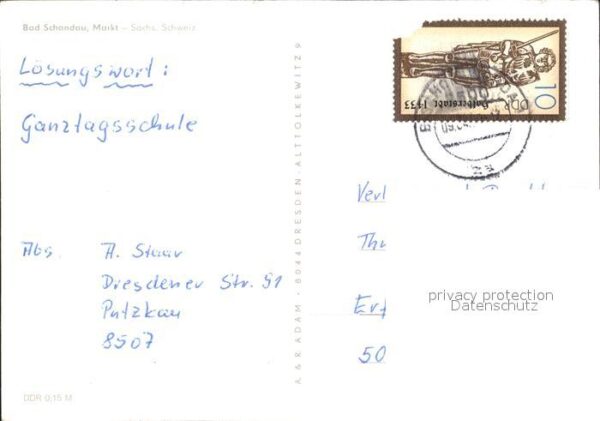 Bad Schandau, Markt – Sächs. Schweiz
Lösungswort:
Ganztagsschule
Abs. A. Staar
Dresdener Str. 91
Putzkau
8507
DDR 0,15 M
A & R ADAM · 8044 DRESDEN - ALTTOLKEWITZ 9
Halberstadt 1433
DDR
10
09.04.
Verl
Thü
Erf
50
privacy protection
Datenschutz